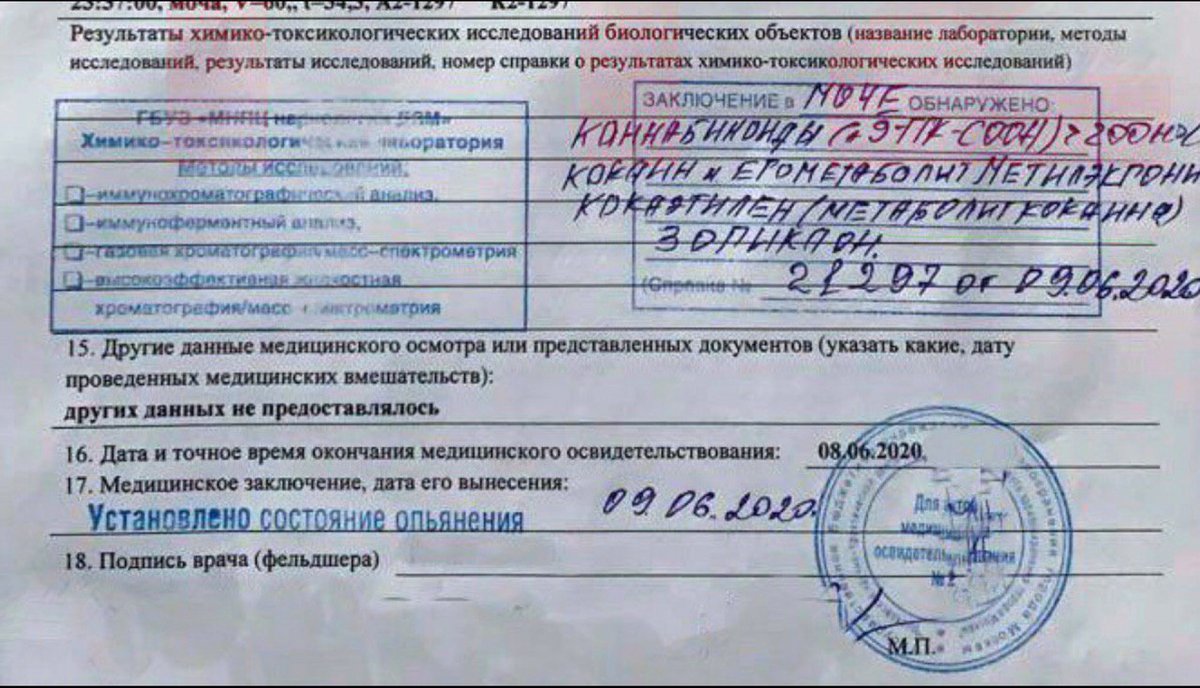 23:57:00, моча, V=60,, t=34,5, А2-1297 К2-1297
Результаты химико-токсикологических исследований биологических объектов (название лаборатории, методы
исследований, результаты исследований, номер справки о результатах химико-токсикологических исследований)
ГБУЗ «МНПЦ наркологии ДЗМ»
Химико-токсикологическая лаборатория
Методы исследований:
–иммунохроматографический анализ,
–иммуноферментный анализ,
–газовая хроматография/масс-спектрометрия
–высокоэффективная жидкостная
хроматография/масс-спектрометрия
ЗАКЛЮЧЕНИЕ в МОЧЕ ОБНАРУЖЕНО:
КАННАБИНОИДЫ
КОКАИН и ЕГО МЕТАБОЛИТ МЕТИЛЭКГОНИ
КОКАЭТИЛЕН (МЕТАБОЛИТ КОКАИНА)
ЗОПИКЛОН.
(Справка № 21297 от 09.06.2020
15. Другие данные медицинского осмотра или представленных документов (указать какие, дату
проведенных медицинских вмешательств):
других данных не предоставлялось
16. Дата и точное время окончания медицинского освидетельствования: 08.06.2020
17. Медицинское заключение, дата его вынесения:
Установлено состояние опьянения 09.06.2020.
Для актов
медицинского
освидетельствования
№2
18. Подпись врача (фельдшера)
М.П.